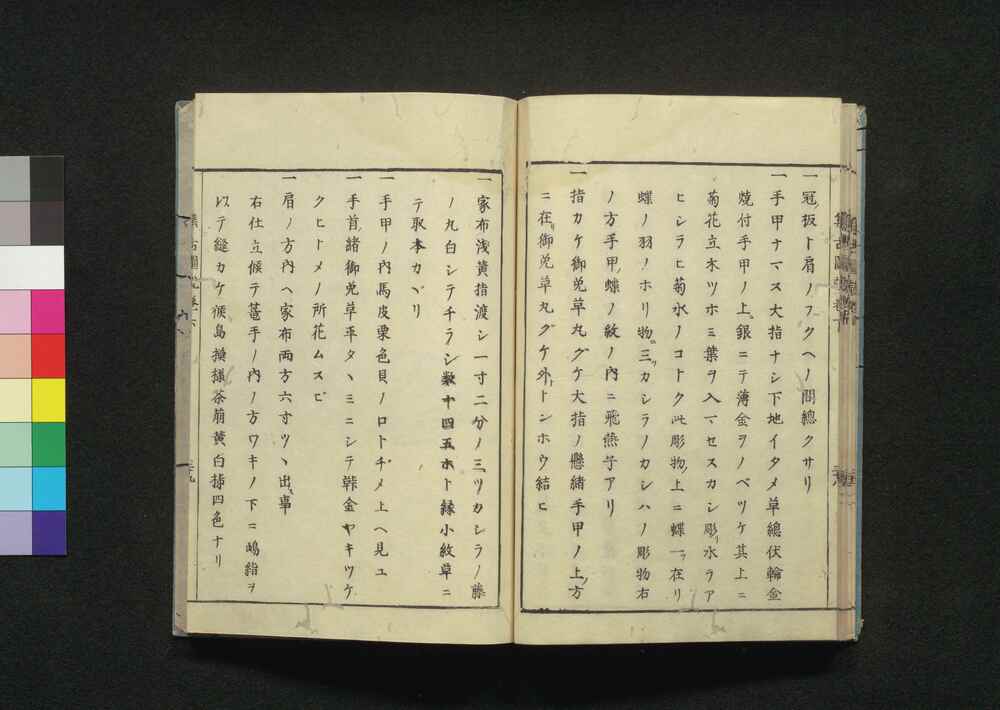 一冠板ト肩ノフクヘノ間總クサリ
一手甲ナマス大指ナシ下地イタメ草總伏輪金
焼付手甲ノ上銀ニテ薄金ヲノベツケ其上ニ
菊花立木ツホミ葉ヲ入マセスカシ彫リ水ラア
ヒシラヒ菊水ノコトク此彫物上ニ蝶一ツ在リ
蝶ノ羽ノホリ物三ツカシラノカシハノ彫物右
ノ方手甲蝶ノ紋ノ内ニ飛燕子アリ
一指カケ御免草丸グケ大指ノ懸緒手甲ノ上ノ方
ニ在リ御免草丸グケ外トンホウ結ヒ
一家布浅黄指渡シ一寸二分ノ三ツカシラノ藤
ノ丸白シテチラシ数十四五ホト縁小紋草ニ
テ取本カヾリ
一手甲ノ内馬皮栗色貝ノロトチメ上ヘ見ユ
一手首諸御免草平タヽミニシテ鋅金ヤキツケ
クヒトメノ所花ムスビ
一肩ノ方内ヘ家布両方六寸ツヽ出ル事
右仕立候テ篭手ノ内ノ方ワキノ下ニ嶋絹ヲ
以テ縫カケ候島模様茶萠黄白掭四色ナリ